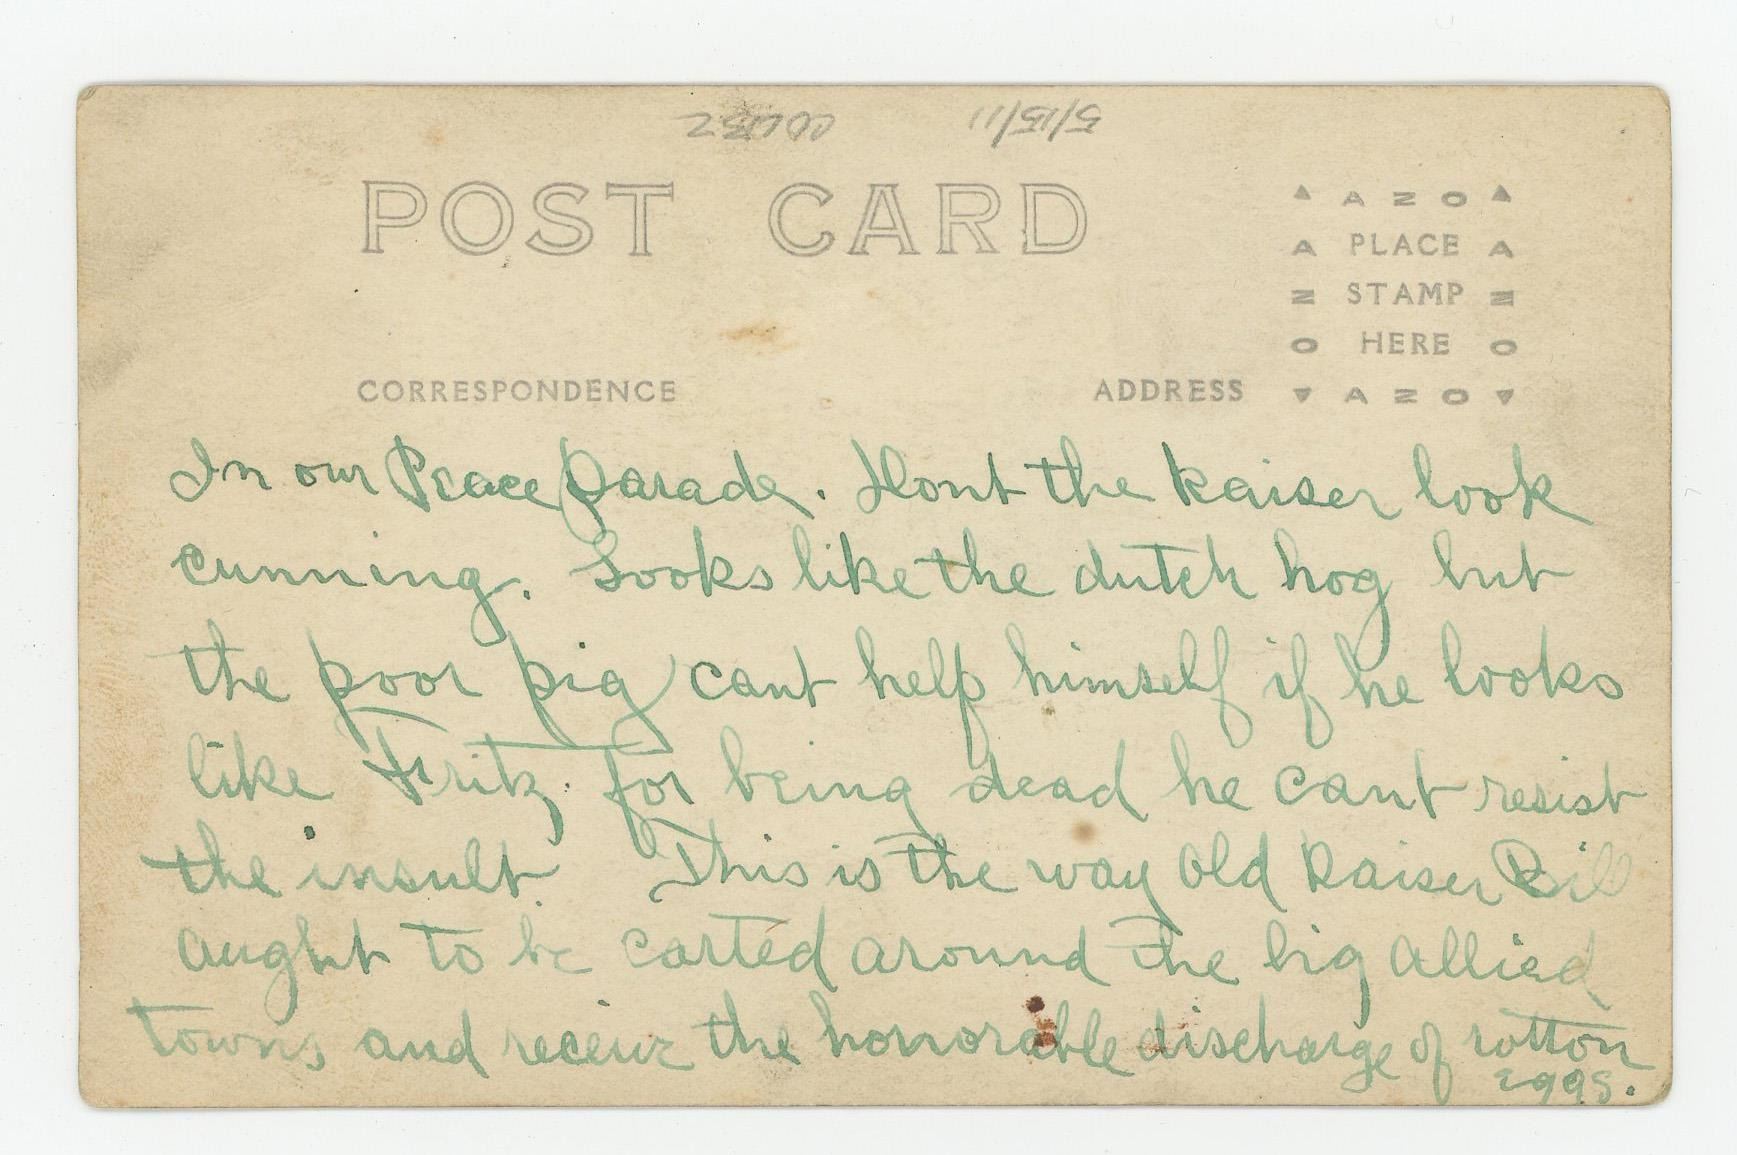 5/15/11 COLBZ
POST CARD
AZO
PLACE
STAMP
HERE
AZO
CORRESPONDENCE ADDRESS
In our Peace Parade. Dont the Kaiser look
cunning. Looks like the dutch hog but
the poor pig cant help himself if he looks
like Fritz. for being dead he cant resist
the insult. This is the way old Kaiser Bill
aught to be carted around the big allied
towns and receive the honorable discharge of rotton
eggs.